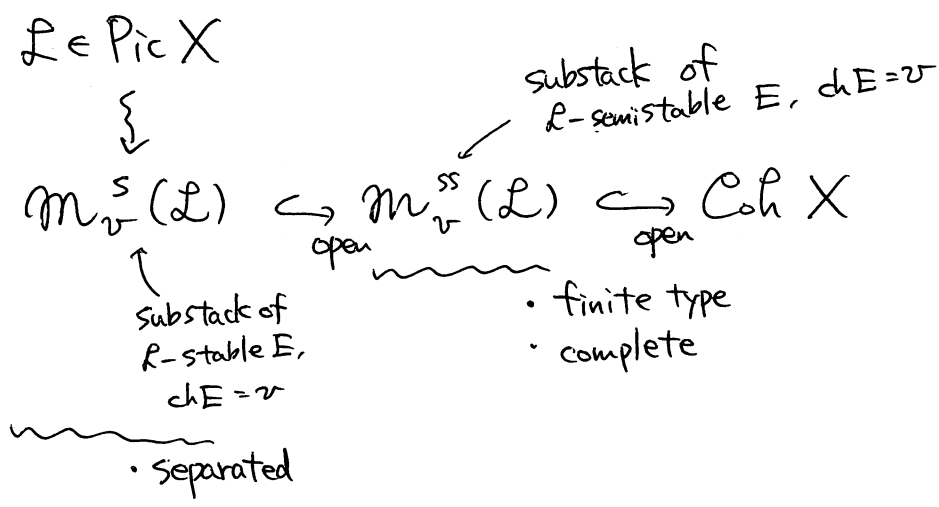 ℒ ∈ Pic X
substack of
ℒ-semistable E, ch E = v
𝓜ᵥˢ(ℒ) ↪ 𝓜ᵥˢˢ(ℒ) ↪ Coh X
open open
substack of
ℒ-stable E,
ch E = v
· finite type
· complete
· separated